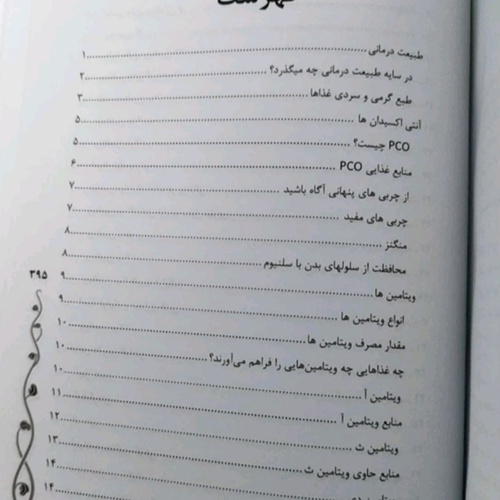 فهرست
طبیعت درمانی ........ ۱
در سایه طبیعت درمانی چه میگذرد؟ ........ ۲
طبع گرمی و سردی غذاها ........ ۳
آنتی اکسیدان ها ........ ۵
PCO چیست؟ ........ ۵
منابع غذایی PCO ........ ۶
از چربی های پنهانی آگاه باشید ........ ۷
چربی های مفید ........ ۷
منگنز ........ ۸
محافظت از سلولهای بدن با سلنیوم ........ ۸
ویتامین ها ........ ۹
۳۹۵
انواع ویتامین ها ........ ۹
مقدار مصرف ویتامین ها ........ ۱۰
چه غذاهایی چه ویتامین‌هایی را فراهم می‌آورند؟ ........ ۱۰
ویتامین آ ........ ۱۰
منابع ویتامین آ ........ ۱۱
ویتامین ث ........ ۱۲
منابع حاوی ویتامین ث ........ ۱۳
۱۴
۱۴